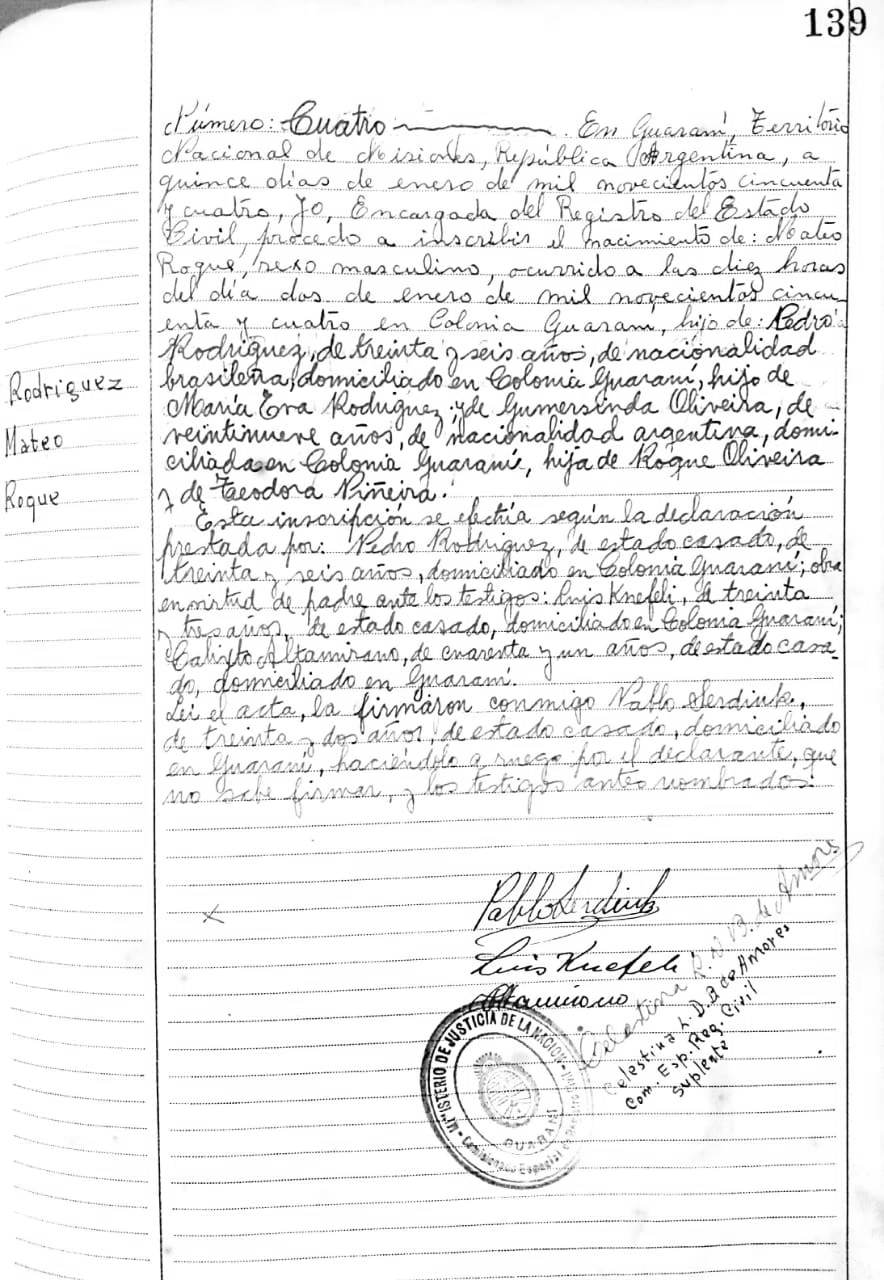 139
Número: Cuatro . En Guaraní, Território
Nacional de Misiones, República Argentina, a
quince días de enero de mil novecientos cincuenta
y cuatro, yo, Encargada del Registro del Estado
Civil, procedo a inscribir el nacimiento de: Mateo
Roque, sexo masculino, ocurrido a las diez horas
del día dos de enero de mil novecientos cincu-
enta y cuatro en Colonia Guaraní, hijo de: Pedro
Rodriguez, de treinta y seis años, de nacionalidad
brasileña, domiciliado en Colonia Guaraní, hijo de
María Eva Rodriguez y de Gumersinda Oliveira, de
veintinueve años, de nacionalidad argentina, domi-
ciliada en Colonia Guaraní, hija de Roque Oliveira
y de Teodora Piñeira.
Rodriguez
Mateo
Roque
Esta inscripción se efectúa según la declaración
prestada por: Pedro Rodriguez, de estado casado, de
treinta y seis años, domiciliado en Colonia Guaraní; obra
en virtud de padre ante los testigos: Luis Knefeli, de treinta
y tres años, de estado casado, domiciliado en Colonia Guaraní;
Calixto Altamirano, de cuarenta y un años, de estado casa-
do, domiciliado en Guaraní.
Leí el acta, la firmaron conmigo Pablo Serdiuk,
de treinta y dos años, de estado casado, domiciliado
en Guaraní, haciéndolo a ruego por el declarante, que
no sabe firmar, y los testigos antes nombrados.
Pablo Serdiuk
Luis Knefeli
Altamirano
Celestina L. D. B. de Amores
Celestina L. D. B de Amores
Com. Esp. Reg. Civil
Suplente
MINISTERIO DE JUSTICIA DE LA NACION
GUARANI